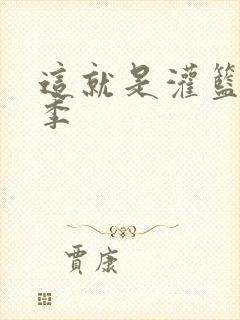 這就是灌籃
季
賈康